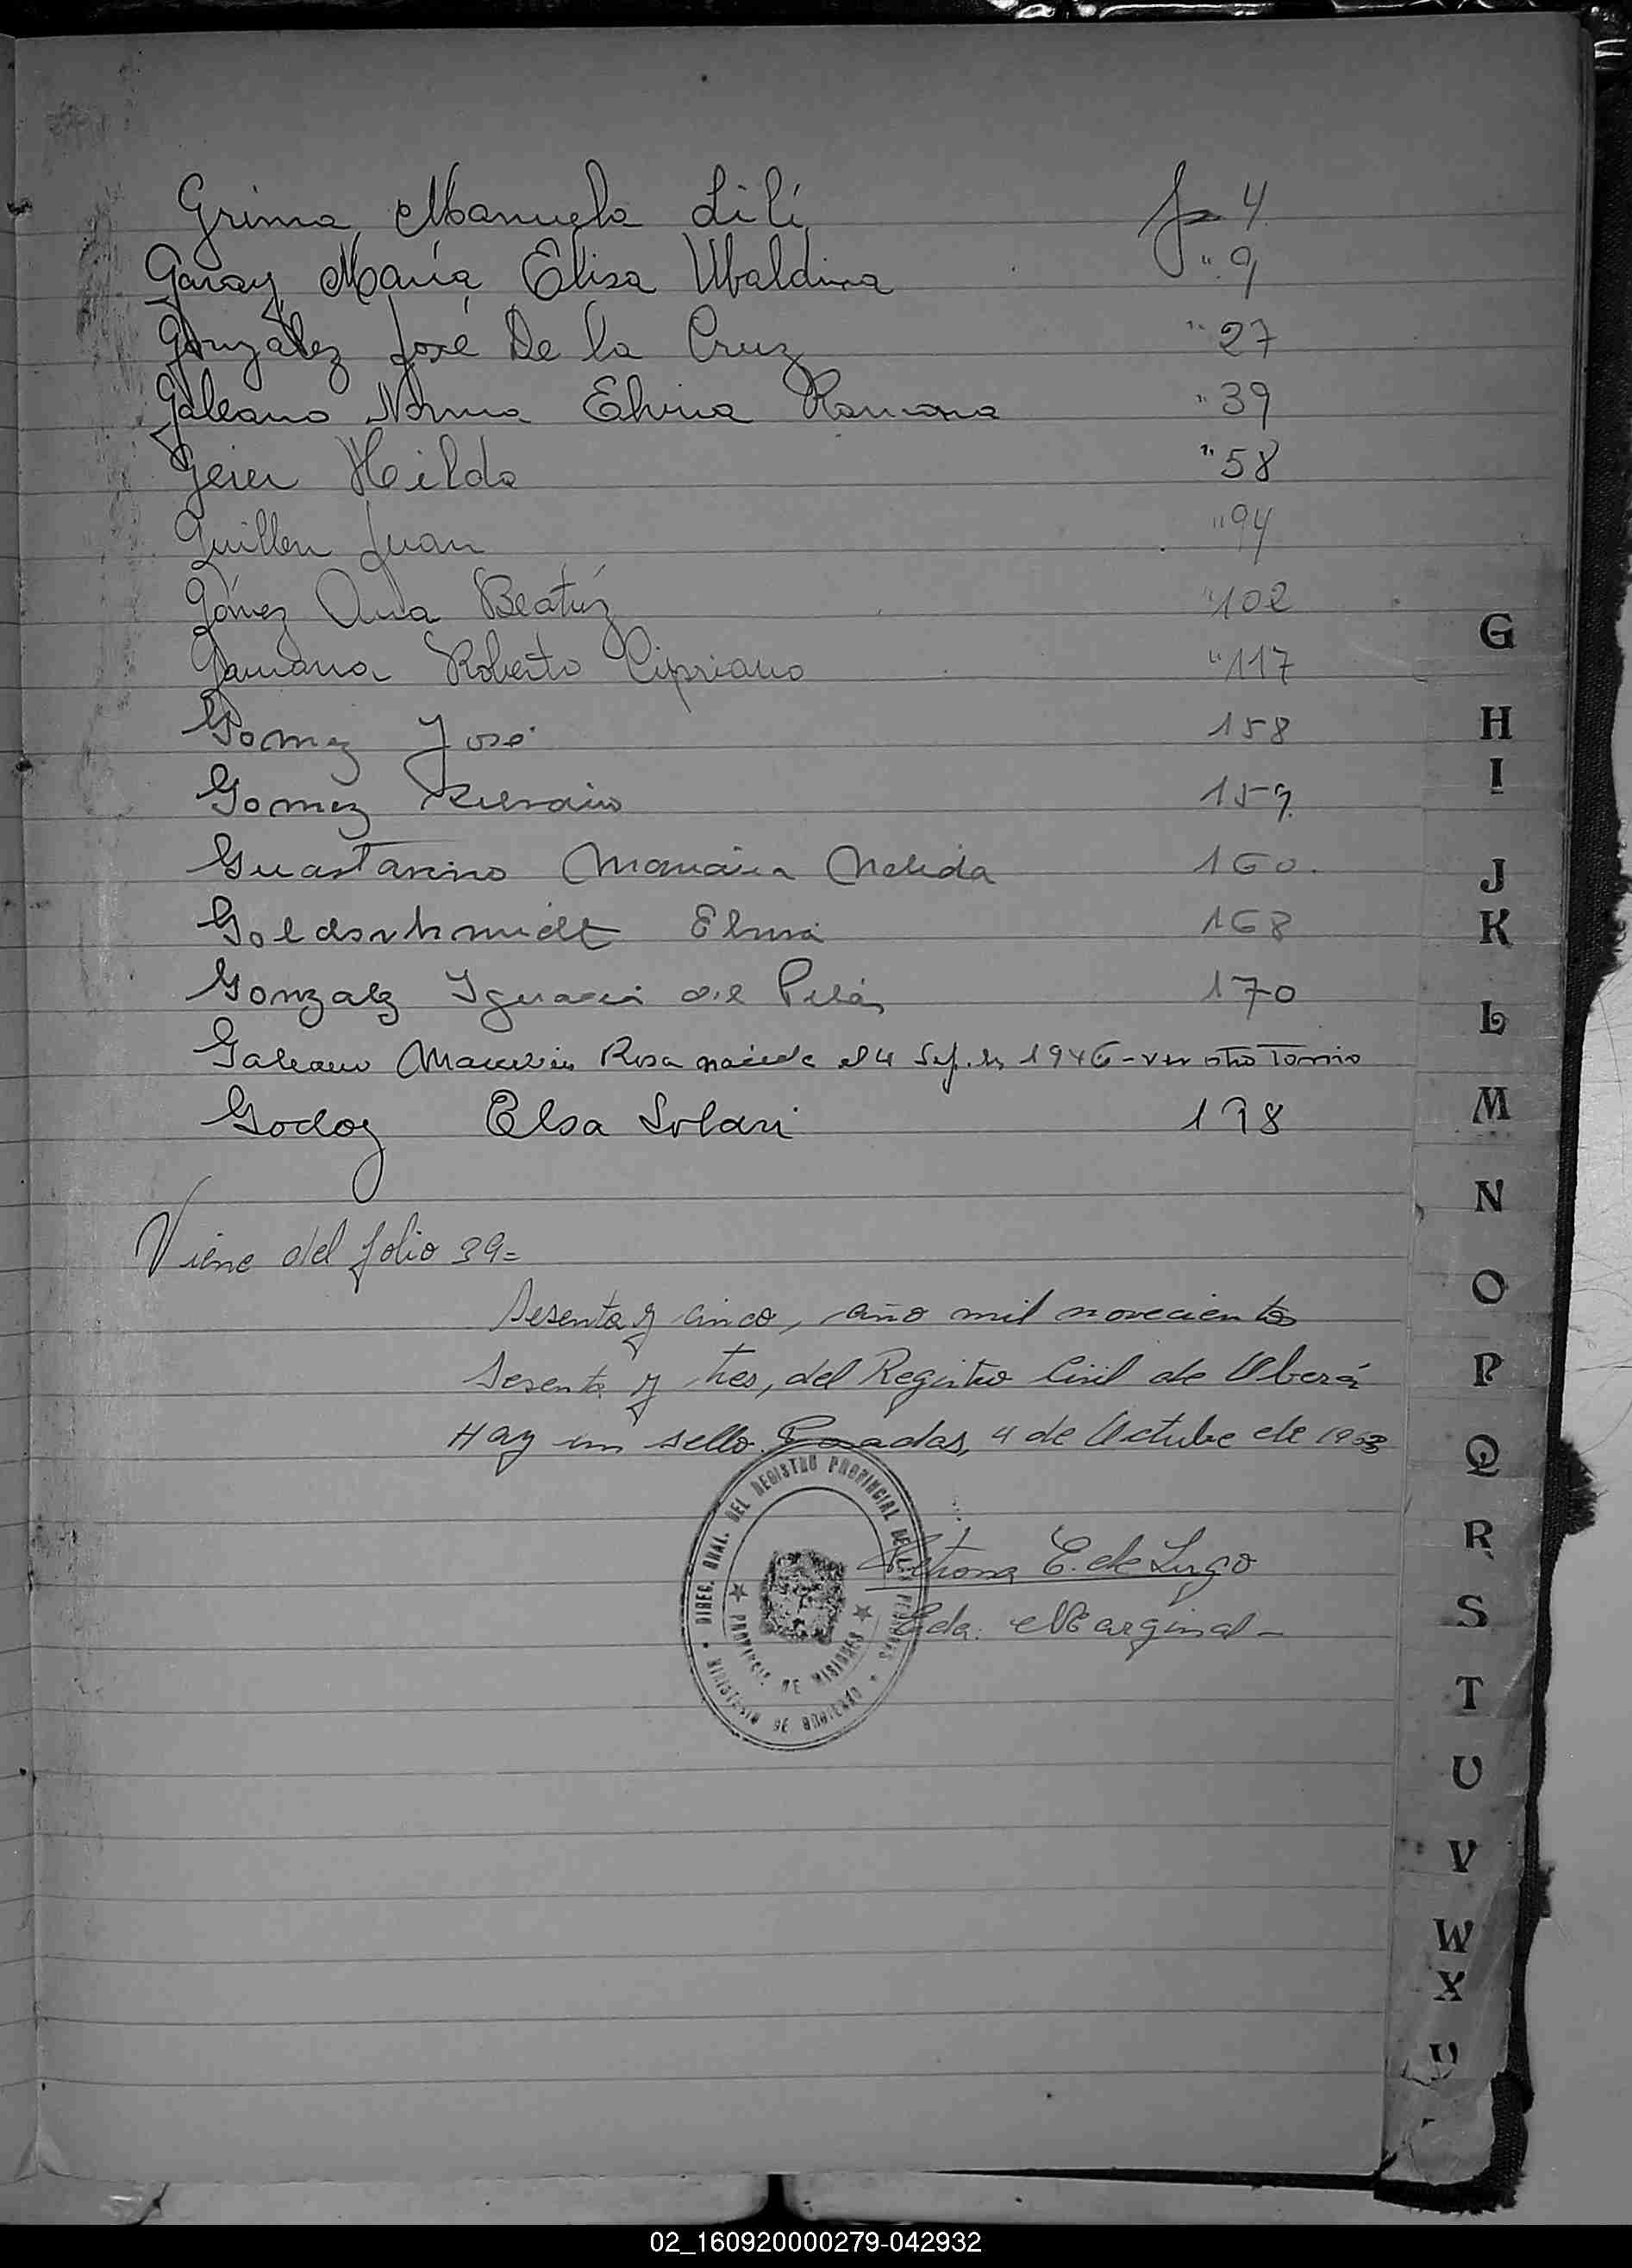 Grima Manuela Lilí fo 4
Garay María Elisa Ubaldina " 9
González José De la Cruz " 27
Galeano Norma Elvira Ramona " 39
Geier Hilda " 58
Guillen Juan " 94
Gómez Ana Beatríz " 102
Roberto Cipriano " 117
Gomez José 158
Gomez 159
Guastavino Nelida 160
Goldschmidt 168
Gonzalez Ignacia del Pilar 170
Galeano Rosa nacida el 4 Sep. 1946 - ver otro Tomo
Godoy Elsa Solari 198
Viene del folio 39=
Sesenta y cinco, año mil novecientos
Sesenta y tres, del Registro Civil de Oberá
Hay un sello. Posadas, 4 de Octubre de 1963
E. de Lugo
Marginal -
DIREC. GRAL. DEL REGISTRO PROVINCIAL DE LAS PERSONAS
PROVINCIA DE MISIONES
MINISTERIO DE GOBIERNO
G
H
I
J
K
L
M
N
O
P
Q
R
S
T
U
V
W
X
02_160920000279-042932